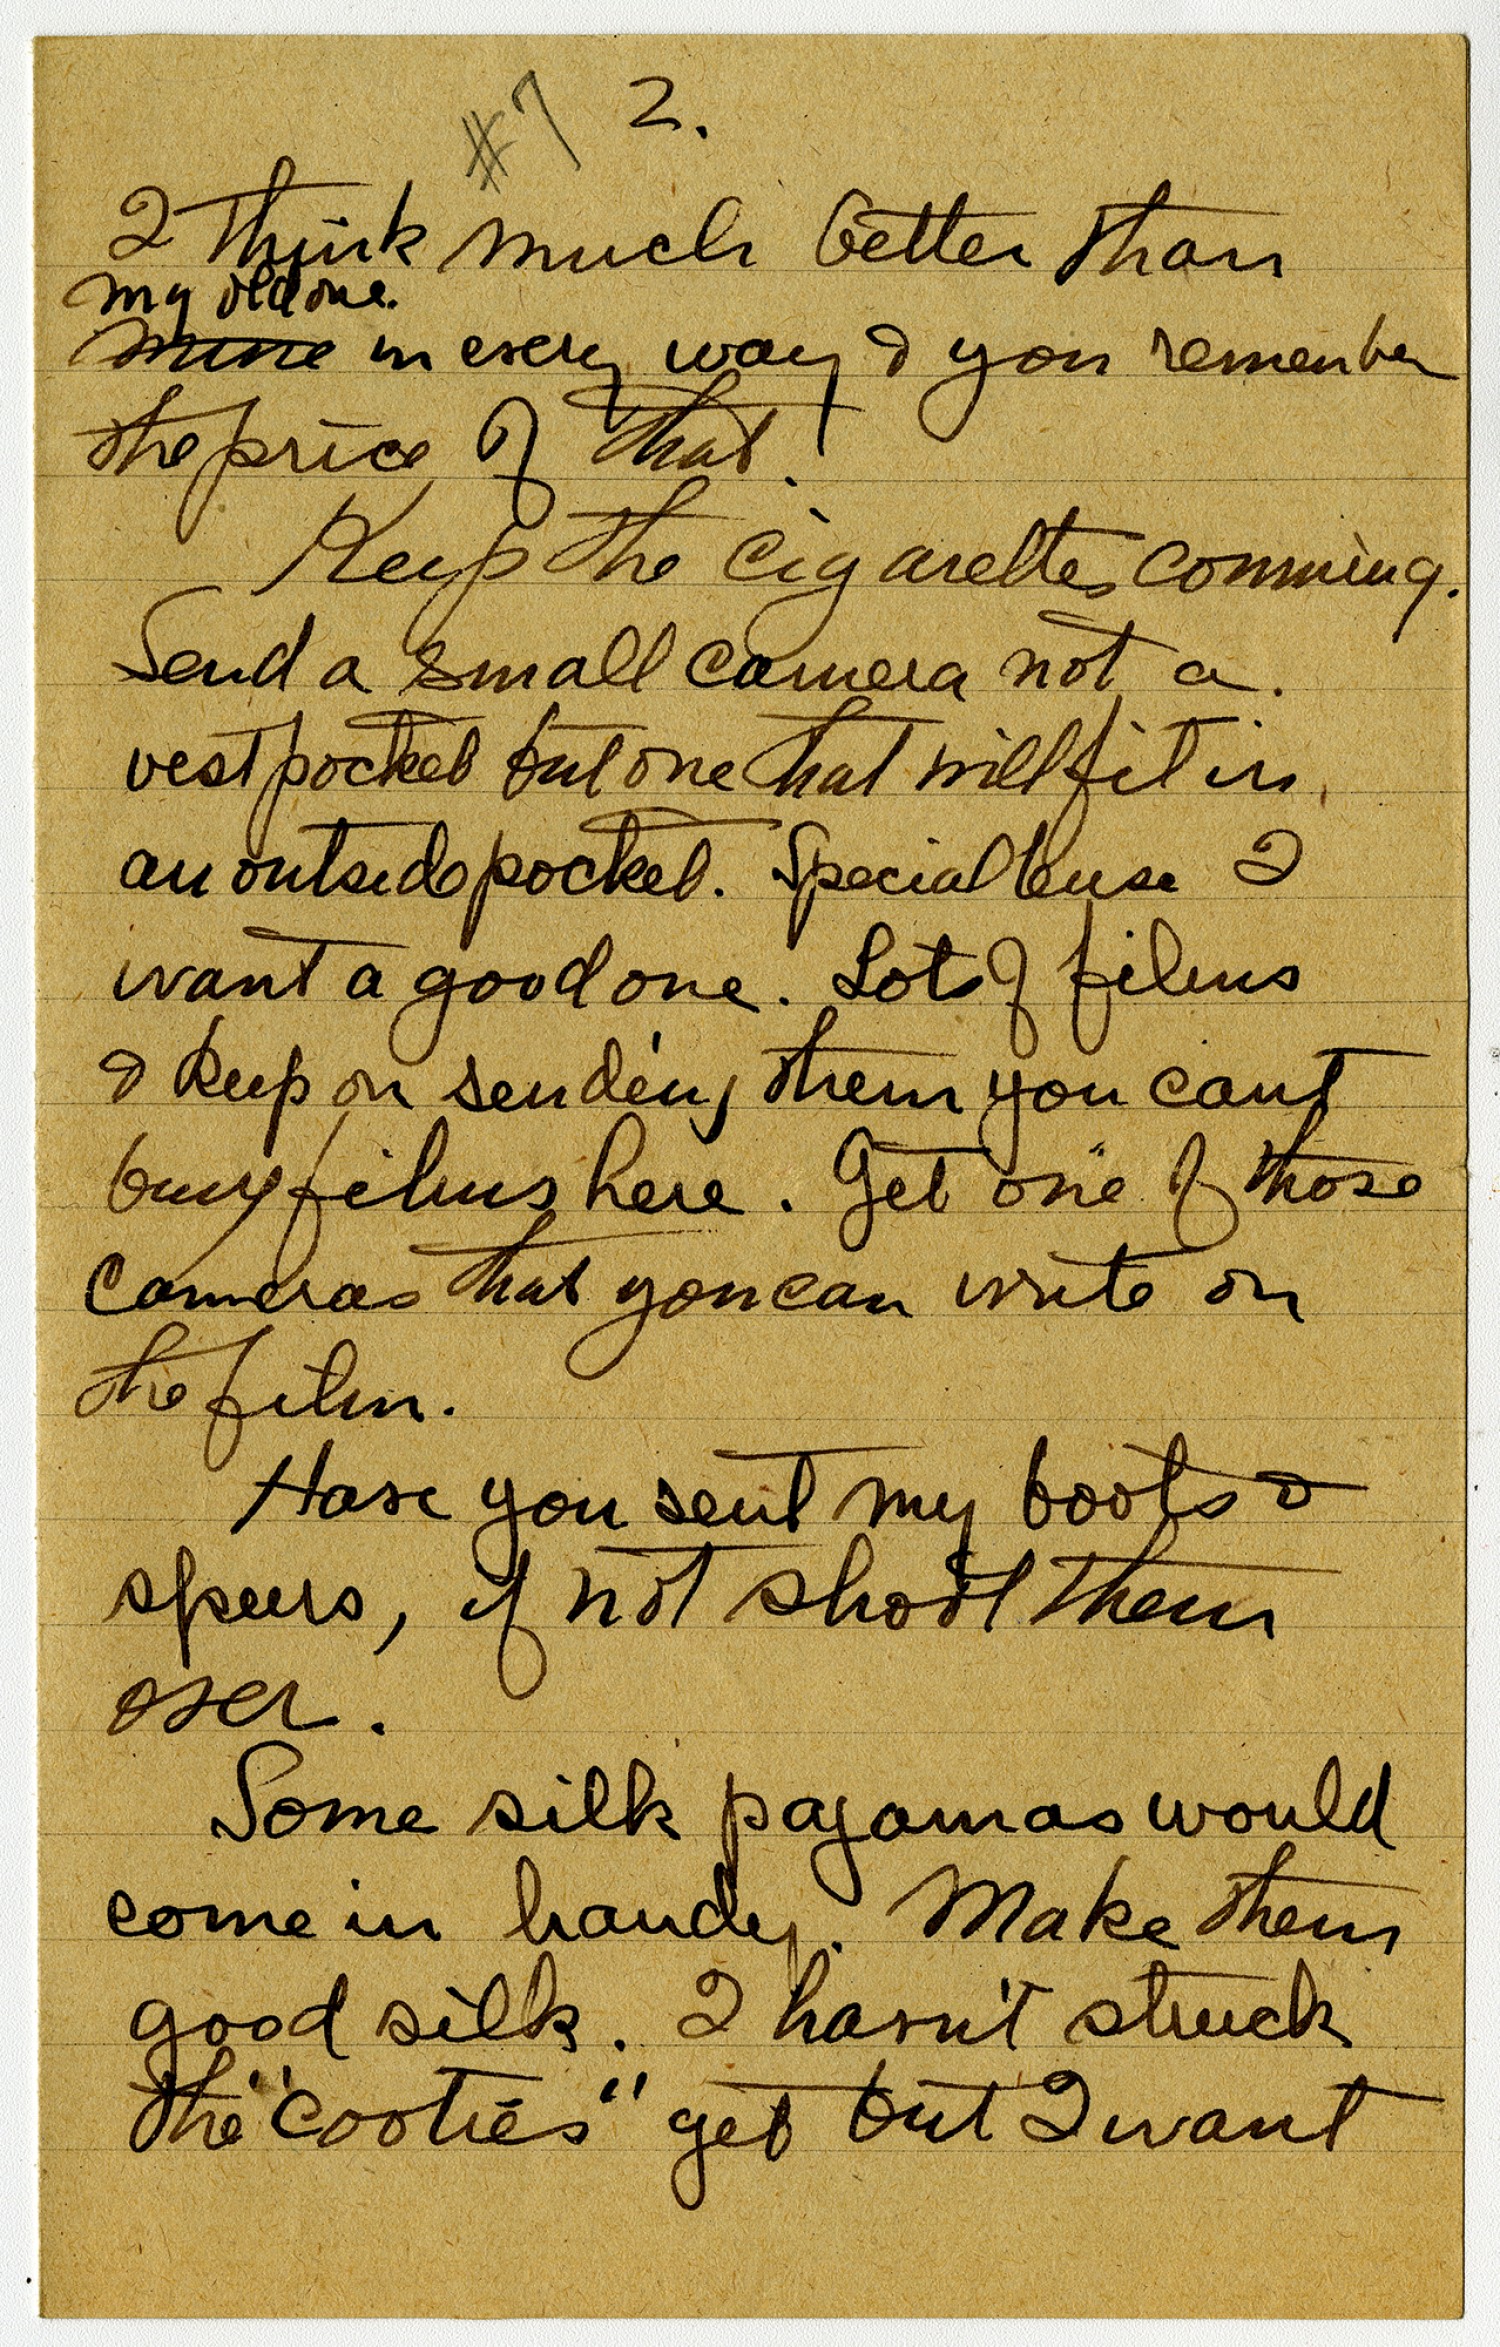 #7 2.
I think much better than
my old one.
mine in every way & you remember
the price of that!
Keep the cigarettes comming.
Send a small camera not a
vest pocket but one that will fit in
an outside pocket. Special lense I
want a good one. Lots of films
& keep on sending them you cant
buy films here. Get one of those
cameras that you can write on
the film.
Have you sent my boots &
spurs, if not shoot them
over.
Some silk pajamas would
come in handy. Make them
good silk. I havn't struck
the "cooties" yet but I want